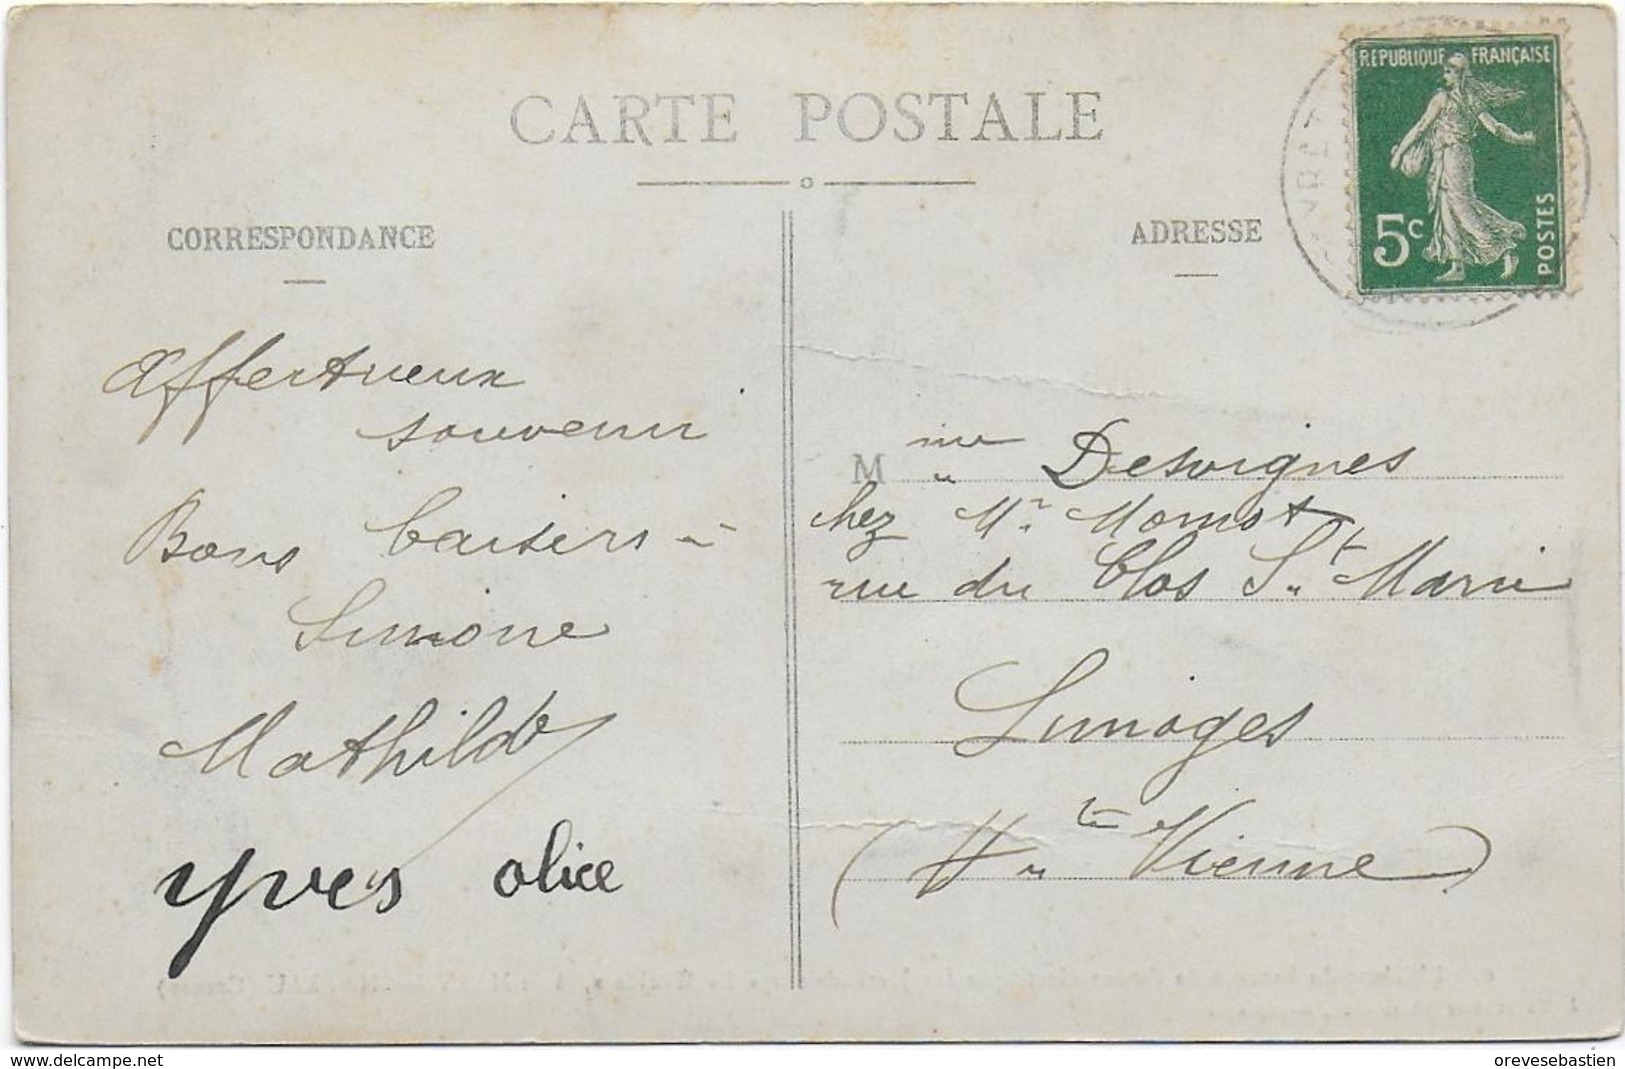 CARTE POSTALE
CORRESPONDANCE
Affectueux
souvenir
Bons baisers -
Simone
Mathilde
yves alice
ADRESSE
REPUBLIQUE FRANÇAISE
5c
POSTES
Mme Desvignes
chez Mr Momot
rue du Clos Ste Marie
Limoges
(Hte Vienne)
www.delcampe.net
orevesebastien